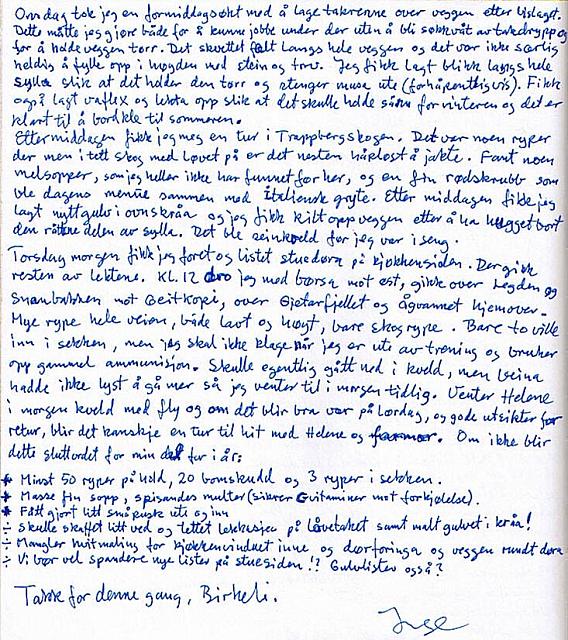 Onsdag tok jeg en formiddagsøkt med å lage takrenne over veggen etter bislaget.
Dette måtte jeg gjøre både for å kunne jobbe under der uten å bli søkkvåt av takdrypp og
for å holde veggen tørr. Det skvettet fælt langs hele veggen og det var ikke særlig
heldig å fylle opp i høyden med stein og torv. Jeg fikk lagt blikk langs hele
sylla slik at det holder den tørr og stenger musa ute (forhåpentligvis). Fikk
også lagt vaflex og lekta opp slik at det skulle holde sånn for vinteren og det er
klart til å bordkle til sommeren.
Ettermiddagen fikk jeg meg en tur i Trappbergskogen. Det var noen ryper
der men i tett skog med løvet på er det nesten håpløst å jakte. Fant noen
melsopper, som jeg heller ikke har funnet før her, og en fin rødskrubb som
ble dagens menue sammen med italiensk gryte. Etter middagen fikk jeg
lagt nytt gulv i ovnskråa og jeg fikk kilt opp veggen etter å ha hugget bort
den råtne delen av sylla. Det ble seinkveld før jeg var i seng.
Torsdag morgen fikk jeg foret og listet stuedøra på kjøkkensiden. Der gikk
resten av lektene. Kl. 12 dro jeg med børsa mot øst, gikk over Legden og
Svanbakken mot Geitkopi, over Gjetarfjellet og Ågvannet hjemover.
Mye rype hele veien, både lavt og høyt, bare skogrype. Bare to ville
inn i sekken, men jeg skal ikke klage når jeg er ute av trening og bruker
opp gammel ammunisjon. Skulle egentlig gått ned i kveld, men beina
hadde ikke lyst å gå mer så jeg venter til i morgen tidlig. Venter Helene
i morgen kveld med fly og om det blir bra vær på lørdag, og gode utsikter for
retur, blir det kanskje en tur til hit med Helene og farmor. Om ikke blir
dette sluttordet for min del for i år:
* Minst 50 ryper på hold, 20 bomskudd og 3 ryper i sekken.
* Masse fin sopp, spisandes multer (sikrer C vitaminer mot forkjølelse).
* Fått gjort litt småpusk ute og inn
÷ Skulle skaffet litt ved og tettet lekkasjen på låvetaket samt malt gulvet i kråa!
÷ Mangler hvitmaling for kjøkkenvinduet inne og dørforinga og veggen rundt døra
÷ Vi bør vel spandere nye lister på stuesiden!? Gulvlister også?
Takk for denne gang, Birkeli.